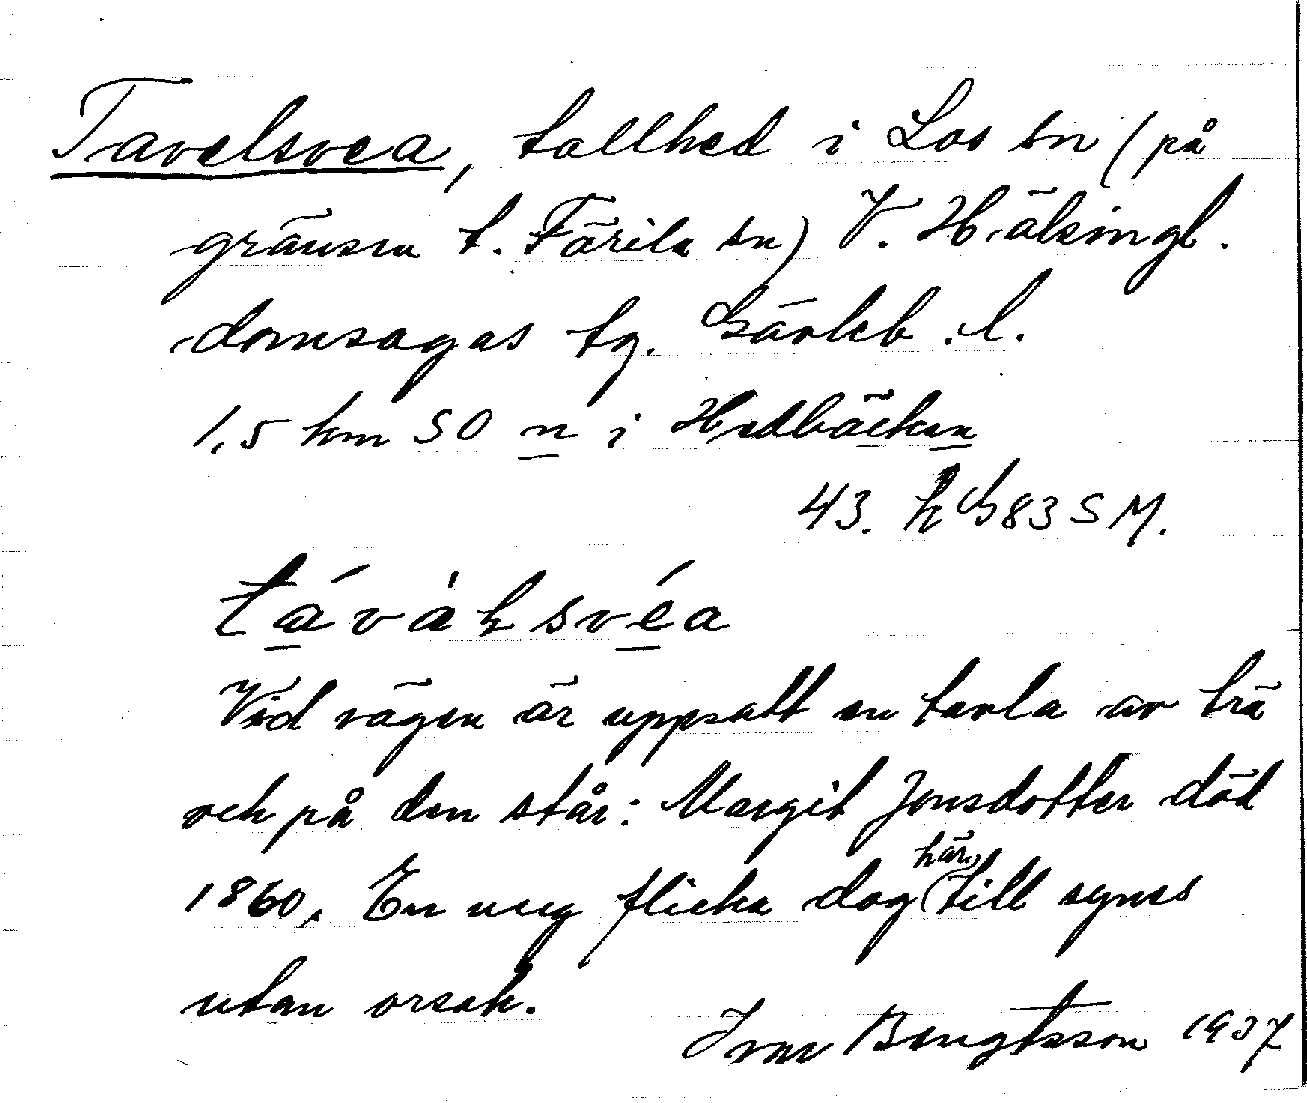 Tavelsvea, tallhed i Los sn (på
gränsen t. Färila sn) V. Hälsingl.
domsagas tg. Gävleb. l.
1,5 km SO n i Hedbäcken
43. h 83 SM.
távàksvéa
Vid vägen är uppsatt en tavla av trä
och på den står: Margit Jonsdotter död
1860. En ung flicka dog här till synes
utan orsak.
Ivar Bengtsson 1937